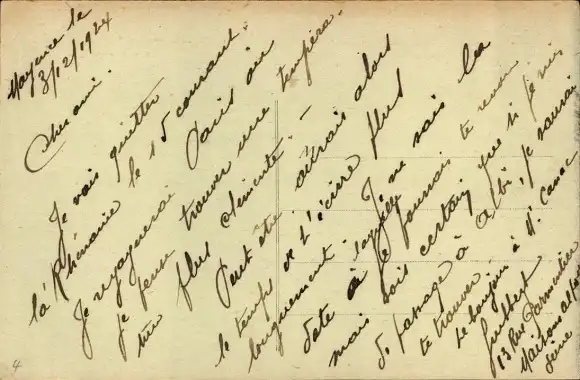 Mayence le
3/12/1924
Cher ami.
Je vais quitter
la Rhénanie le 15 courant.
Je regagnerai Paris où
je pense trouver une tempéra-
ture plus clémente. -
Peut être aurais alors
le temps de t'écrire plus
longuement. Je ne sais la
date à laquelle je pourrais te revoir
mais sois certain que si je suis
de passage à Albi, je saurai
te trouver.
Le bonjour à Mr. Canac
Guibert
13 Rue Parmentier
Maisons alfort
Seine
4